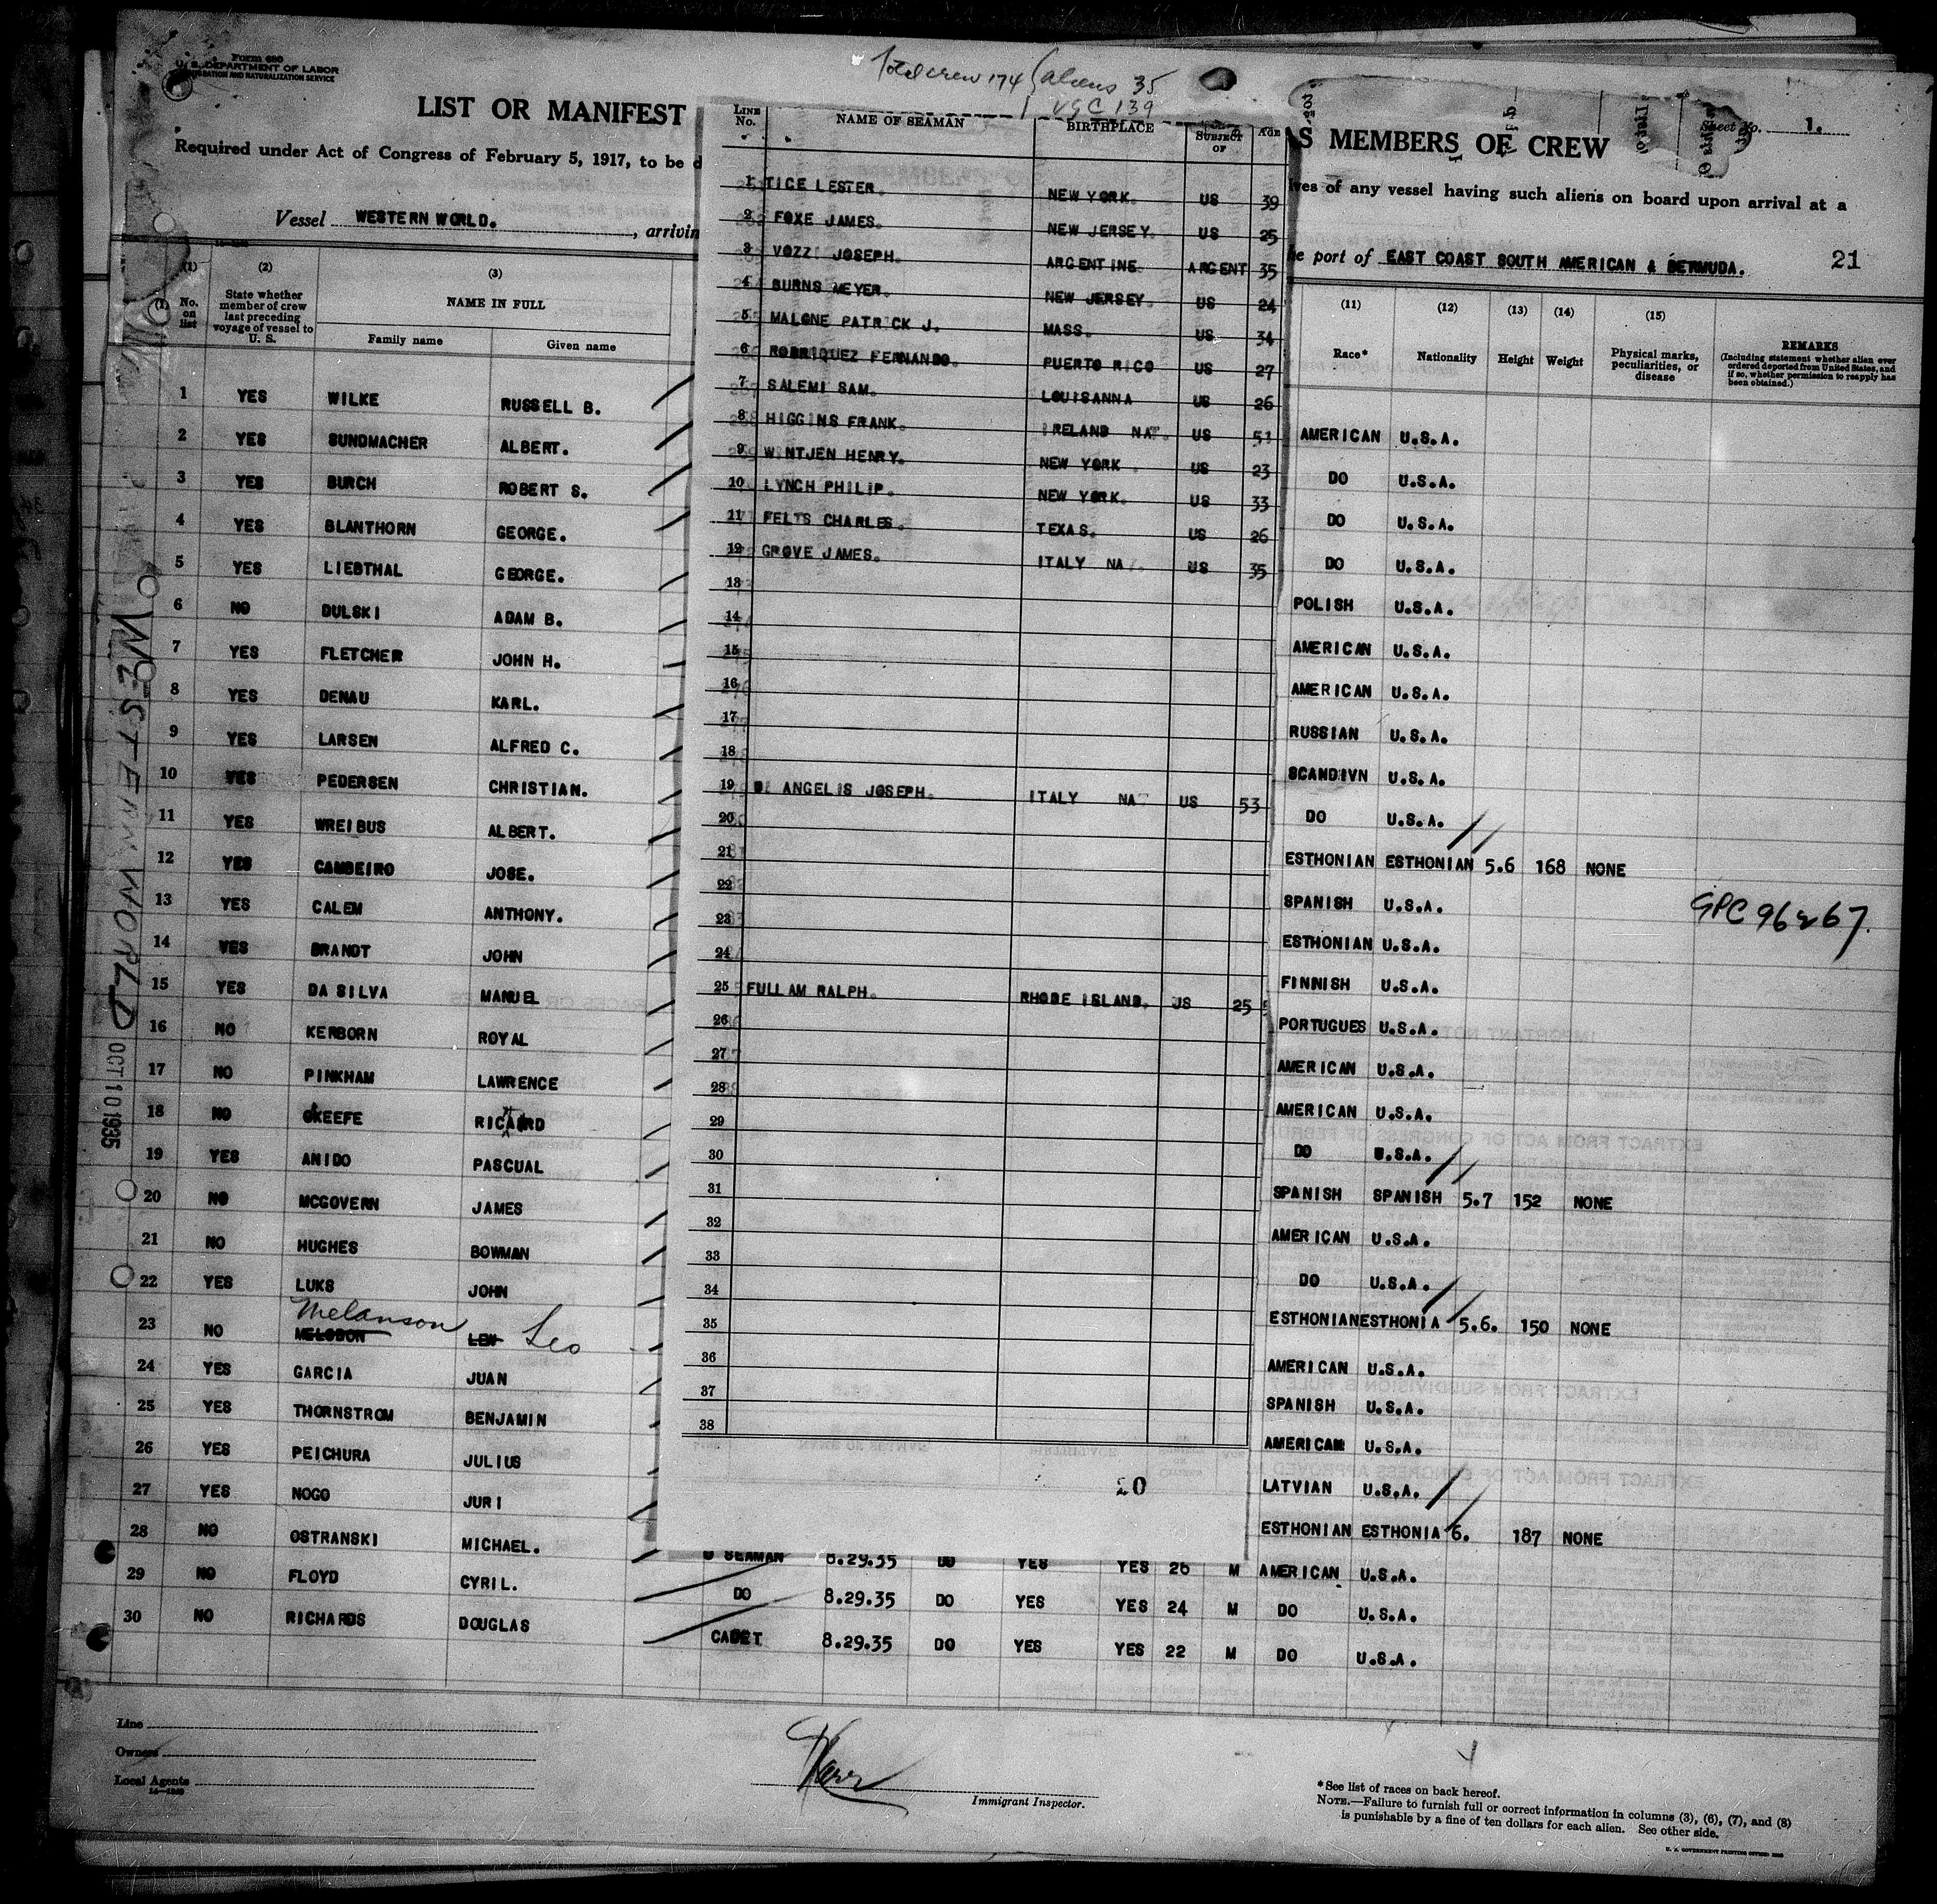 Form 680
U. S. DEPARTMENT OF LABOR
IMMIGRATION AND NATURALIZATION SERVICE
Total crew 174 aliens 35
USC 139
LIST OR MANIFEST
S MEMBERS OF CREW
Sheet No. 1.
Required under Act of Congress of February 5, 1917, to be d
ives of any vessel having such aliens on board upon arrival at a
Vessel WESTERN WORLD. , arrivin
he port of EAST COAST SOUTH AMERICAN & BERMUDA. 21
LINE No. NAME OF SEAMAN BIRTHPLACE SUBJECT OF AGE
1 TICE LESTER. NEW YORK. US 39
2 FOXE JAMES. NEW JERSEY. US 25
3 VOZZI JOSEPH. ARGENTINE. ARGENT 35
4 BURNS MEYER. NEW JERSEY. US 24
5 MALONE PATRICK J. MASS. US 34
6 RODRIQUEZ FERNANDO. PUERTO RICO US 27
7 SALEMI SAM. LOUISANNA US 26
8 HIGGINS FRANK. IRELAND NAT. US 51
9 WINTJEN HENRY. NEW YORK. US 23
10 LYNCH PHILIP. NEW YORK. US 33
11 FELTS CHARLES. TEXAS. US 26
12 GROVE JAMES. ITALY NAT. US 35
13
14
15
16
17
18
19 DI ANGELIS JOSEPH. ITALY NAT US 53
20
21
22
23
24
25 FULLAM RALPH. RHODE ISLAND. US 25
26
27
28
29
30
31
32
33
34
35
36
37
38
20
(1) (2) (3) (11) (12) (13) (14) (15)
No. on list State whether member of crew last preceding voyage of vessel to U. S. NAME IN FULL Family name Given name
Race* Nationality Height Weight Physical marks, peculiarities, or disease REMARKS (Including statement whether alien ever ordered deported from United States, and if so, whether permission to reapply has been obtained.)
1 YES WILKE RUSSELL B. AMERICAN U.S.A.
2 YES SUNDMACHER ALBERT. DO U.S.A.
3 YES BURCH ROBERT S. DO U.S.A.
4 YES BLANTHORN GEORGE. DO U.S.A.
5 YES LIEBTHAL GEORGE. POLISH U.S.A.
6 NO DULSKI ADAM B. AMERICAN U.S.A.
7 YES FLETCHER JOHN H. AMERICAN U.S.A.
8 YES DENAU KARL. RUSSIAN U.S.A.
9 YES LARSEN ALFRED C. SCANDIVN U.S.A.
10 YES PEDERSEN CHRISTIAN. DO U.S.A.
11 YES WREIBUS ALBERT. ESTHONIAN ESTHONIAN 5.6 168 NONE
12 YES CAMBEIRO JOSE. SPANISH U.S.A. GPC 96267.
13 YES CALEM ANTHONY. ESTHONIAN U.S.A.
14 YES BRANDT JOHN FINNISH U.S.A.
15 YES DA SILVA MANUEL PORTUGUES U.S.A.
16 NO KERBORN ROYAL AMERICAN U.S.A.
17 NO PINKHAM LAWRENCE AMERICAN U.S.A.
18 NO OKEEFE RICHARD DO U.S.A.
19 YES ANIDO PASCUAL SPANISH SPANISH 5.7 152 NONE
20 NO MCGOVERN JAMES AMERICAN U.S.A.
21 NO HUGHES BOWMAN DO U.S.A.
22 YES LUKS JOHN ESTHONIAN ESTHONIA 5.6. 150 NONE
Melanson
23 NO MELODON LEN Leo AMERICAN U.S.A.
24 YES GARCIA JUAN SPANISH U.S.A.
25 YES THORNSTROM BENJAMIN AMERICAN U.S.A.
26 YES PEICHURA JULIUS LATVIAN U.S.A.
27 YES NOGO JURI ESTHONIAN ESTHONIA 6. 187 NONE
28 NO OSTRANSKI MICHAEL. O SEAMAN 8.29.35 DO YES YES 26 M AMERICAN U.S.A.
29 NO FLOYD CYRIL. DO 8.29.35 DO YES YES 24 M DO U.S.A.
30 NO RICHARDS DOUGLAS CADET 8.29.35 DO YES YES 22 M DO U.S.A.
WESTERN WORLD OCT 10 1935
Line
Owners
Local Agents
14—1240
Immigrant Inspector.
*See list of races on back hereof.
NOTE.—Failure to furnish full or correct information in columns (3), (6), (7), and (8)
is punishable by a fine of ten dollars for each alien. See other side.
U. S. GOVERNMENT PRINTING OFFICE